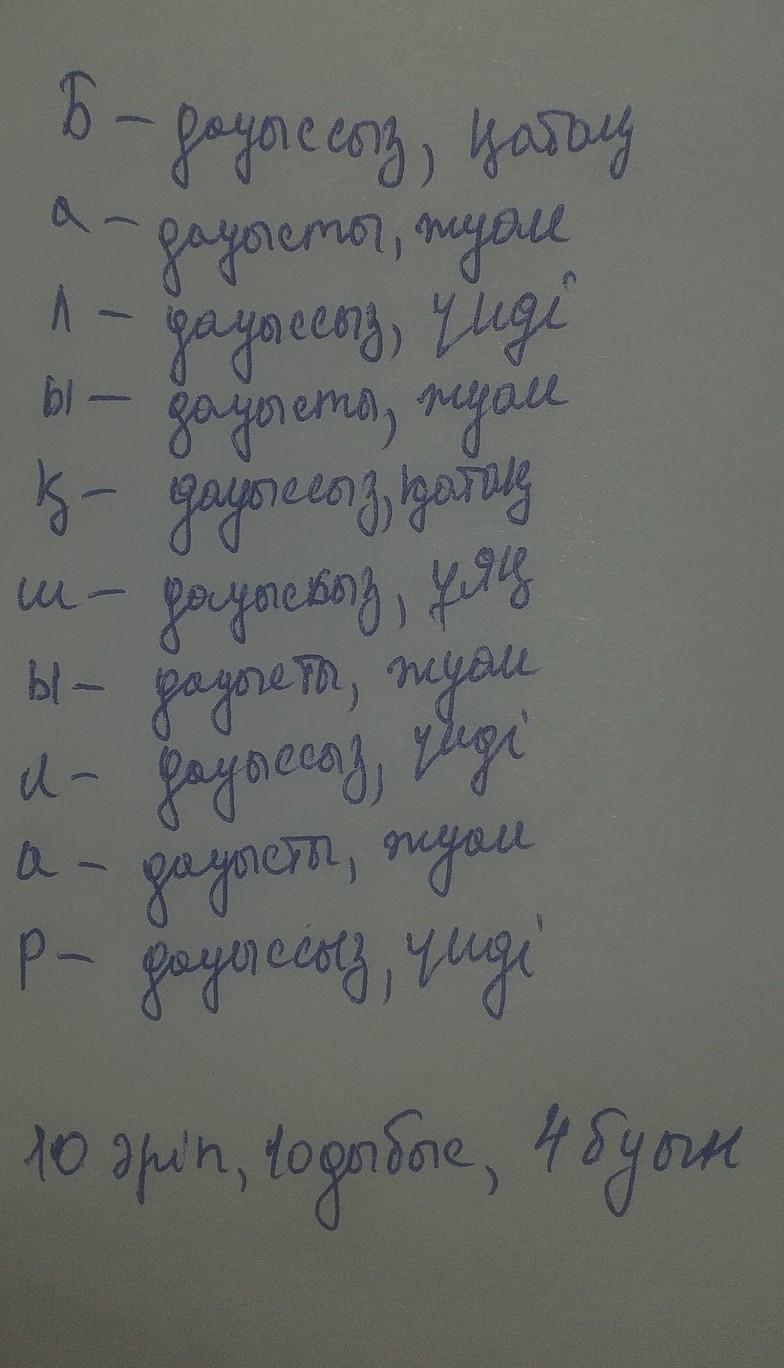 Б – дауыссыз, қатаң
а – дауысты, жуан
л – дауыссыз, үнді
ы – дауысты, жуан
қ – дауыссыз, қатаң
ш – дауыссыз, ұяң
ы – дауысты, жуан
л – дауыссыз, үнді
а – дауысты, жуан
р – дауыссыз, үнді
10 әріп, 10 дыбыс, 4 буын